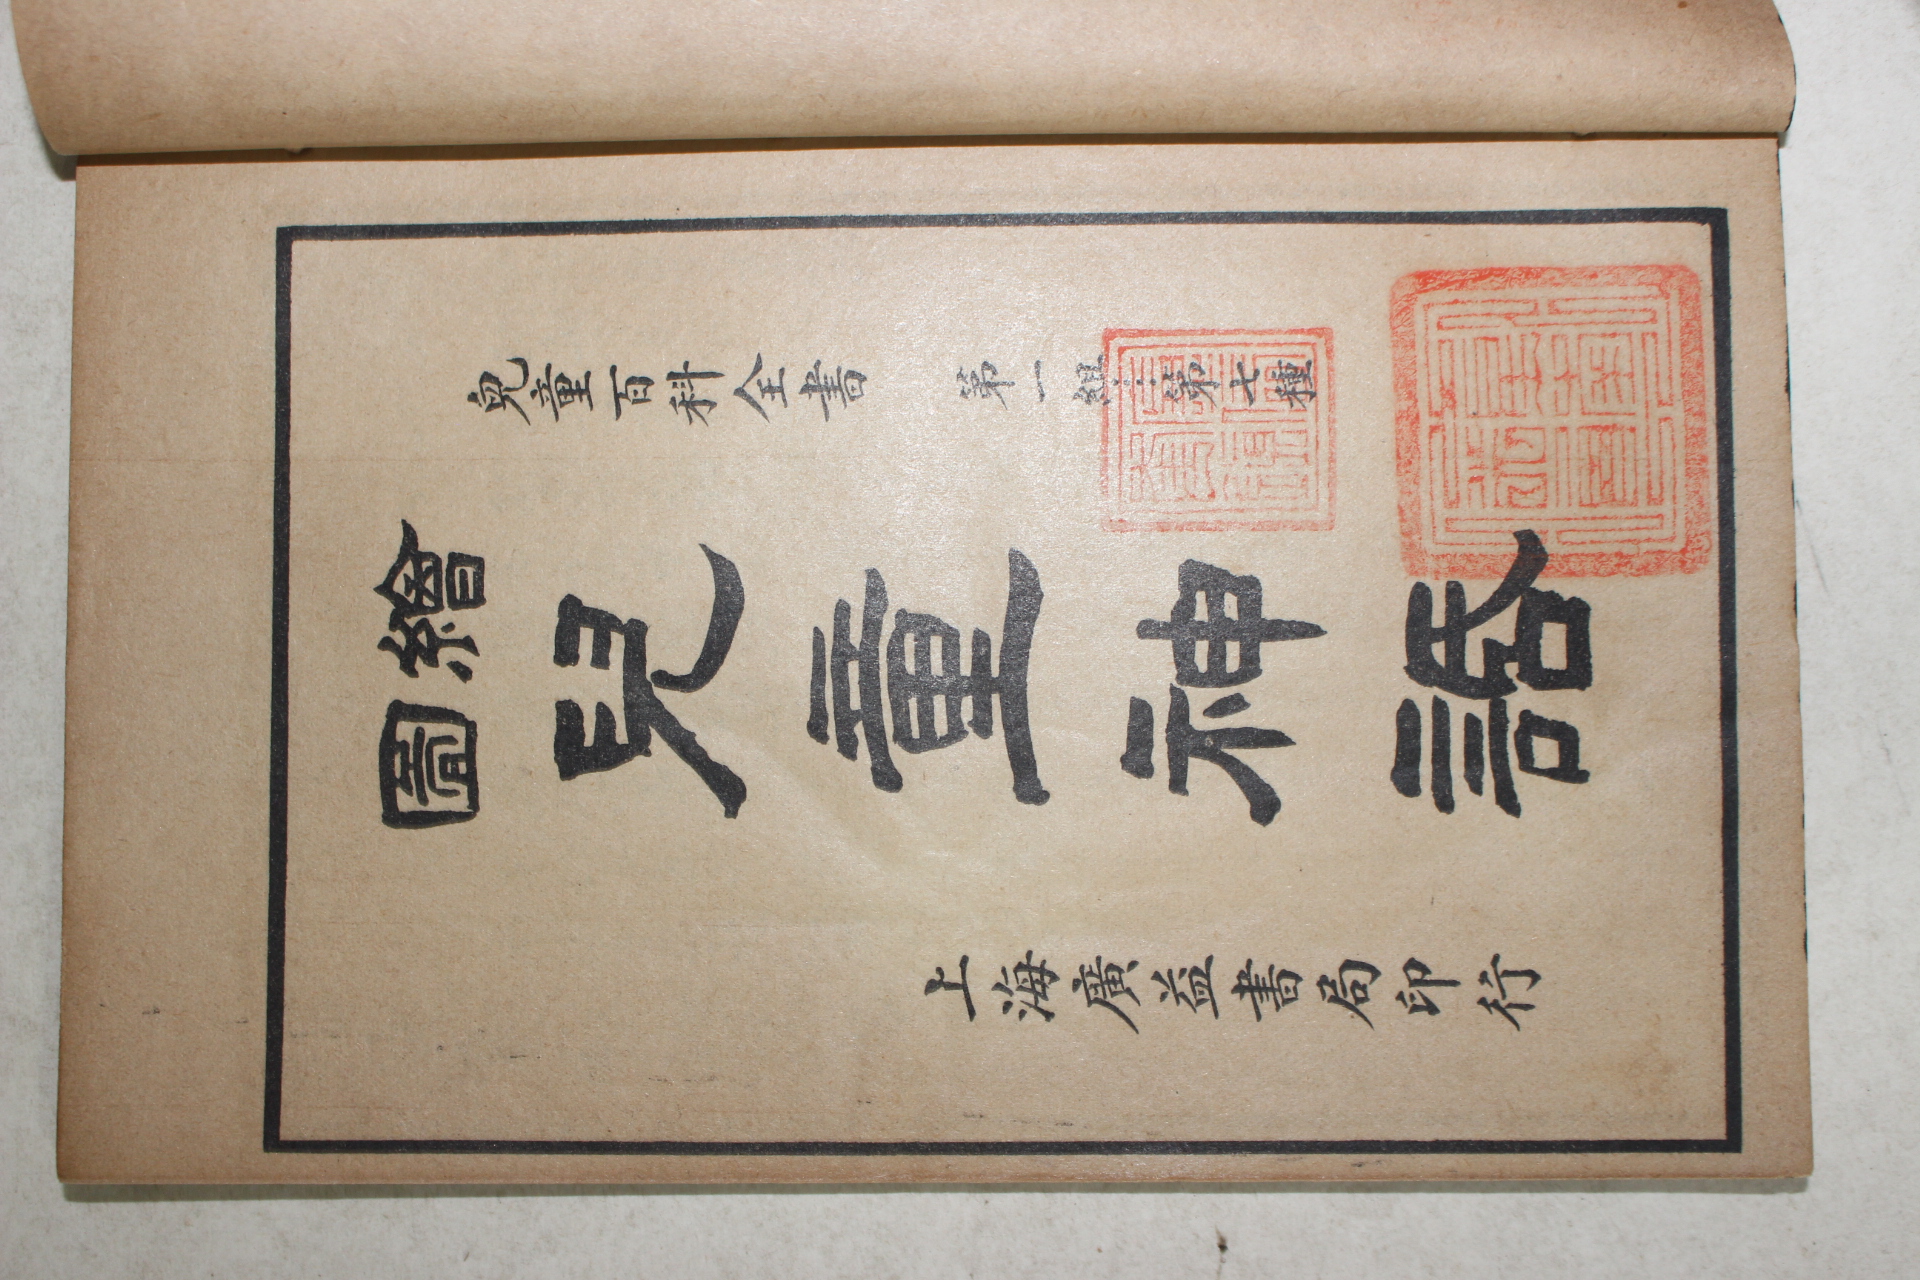 兒童百科全書　第一組…第七種
繪圖
兒童神話
上海廣益書局印行